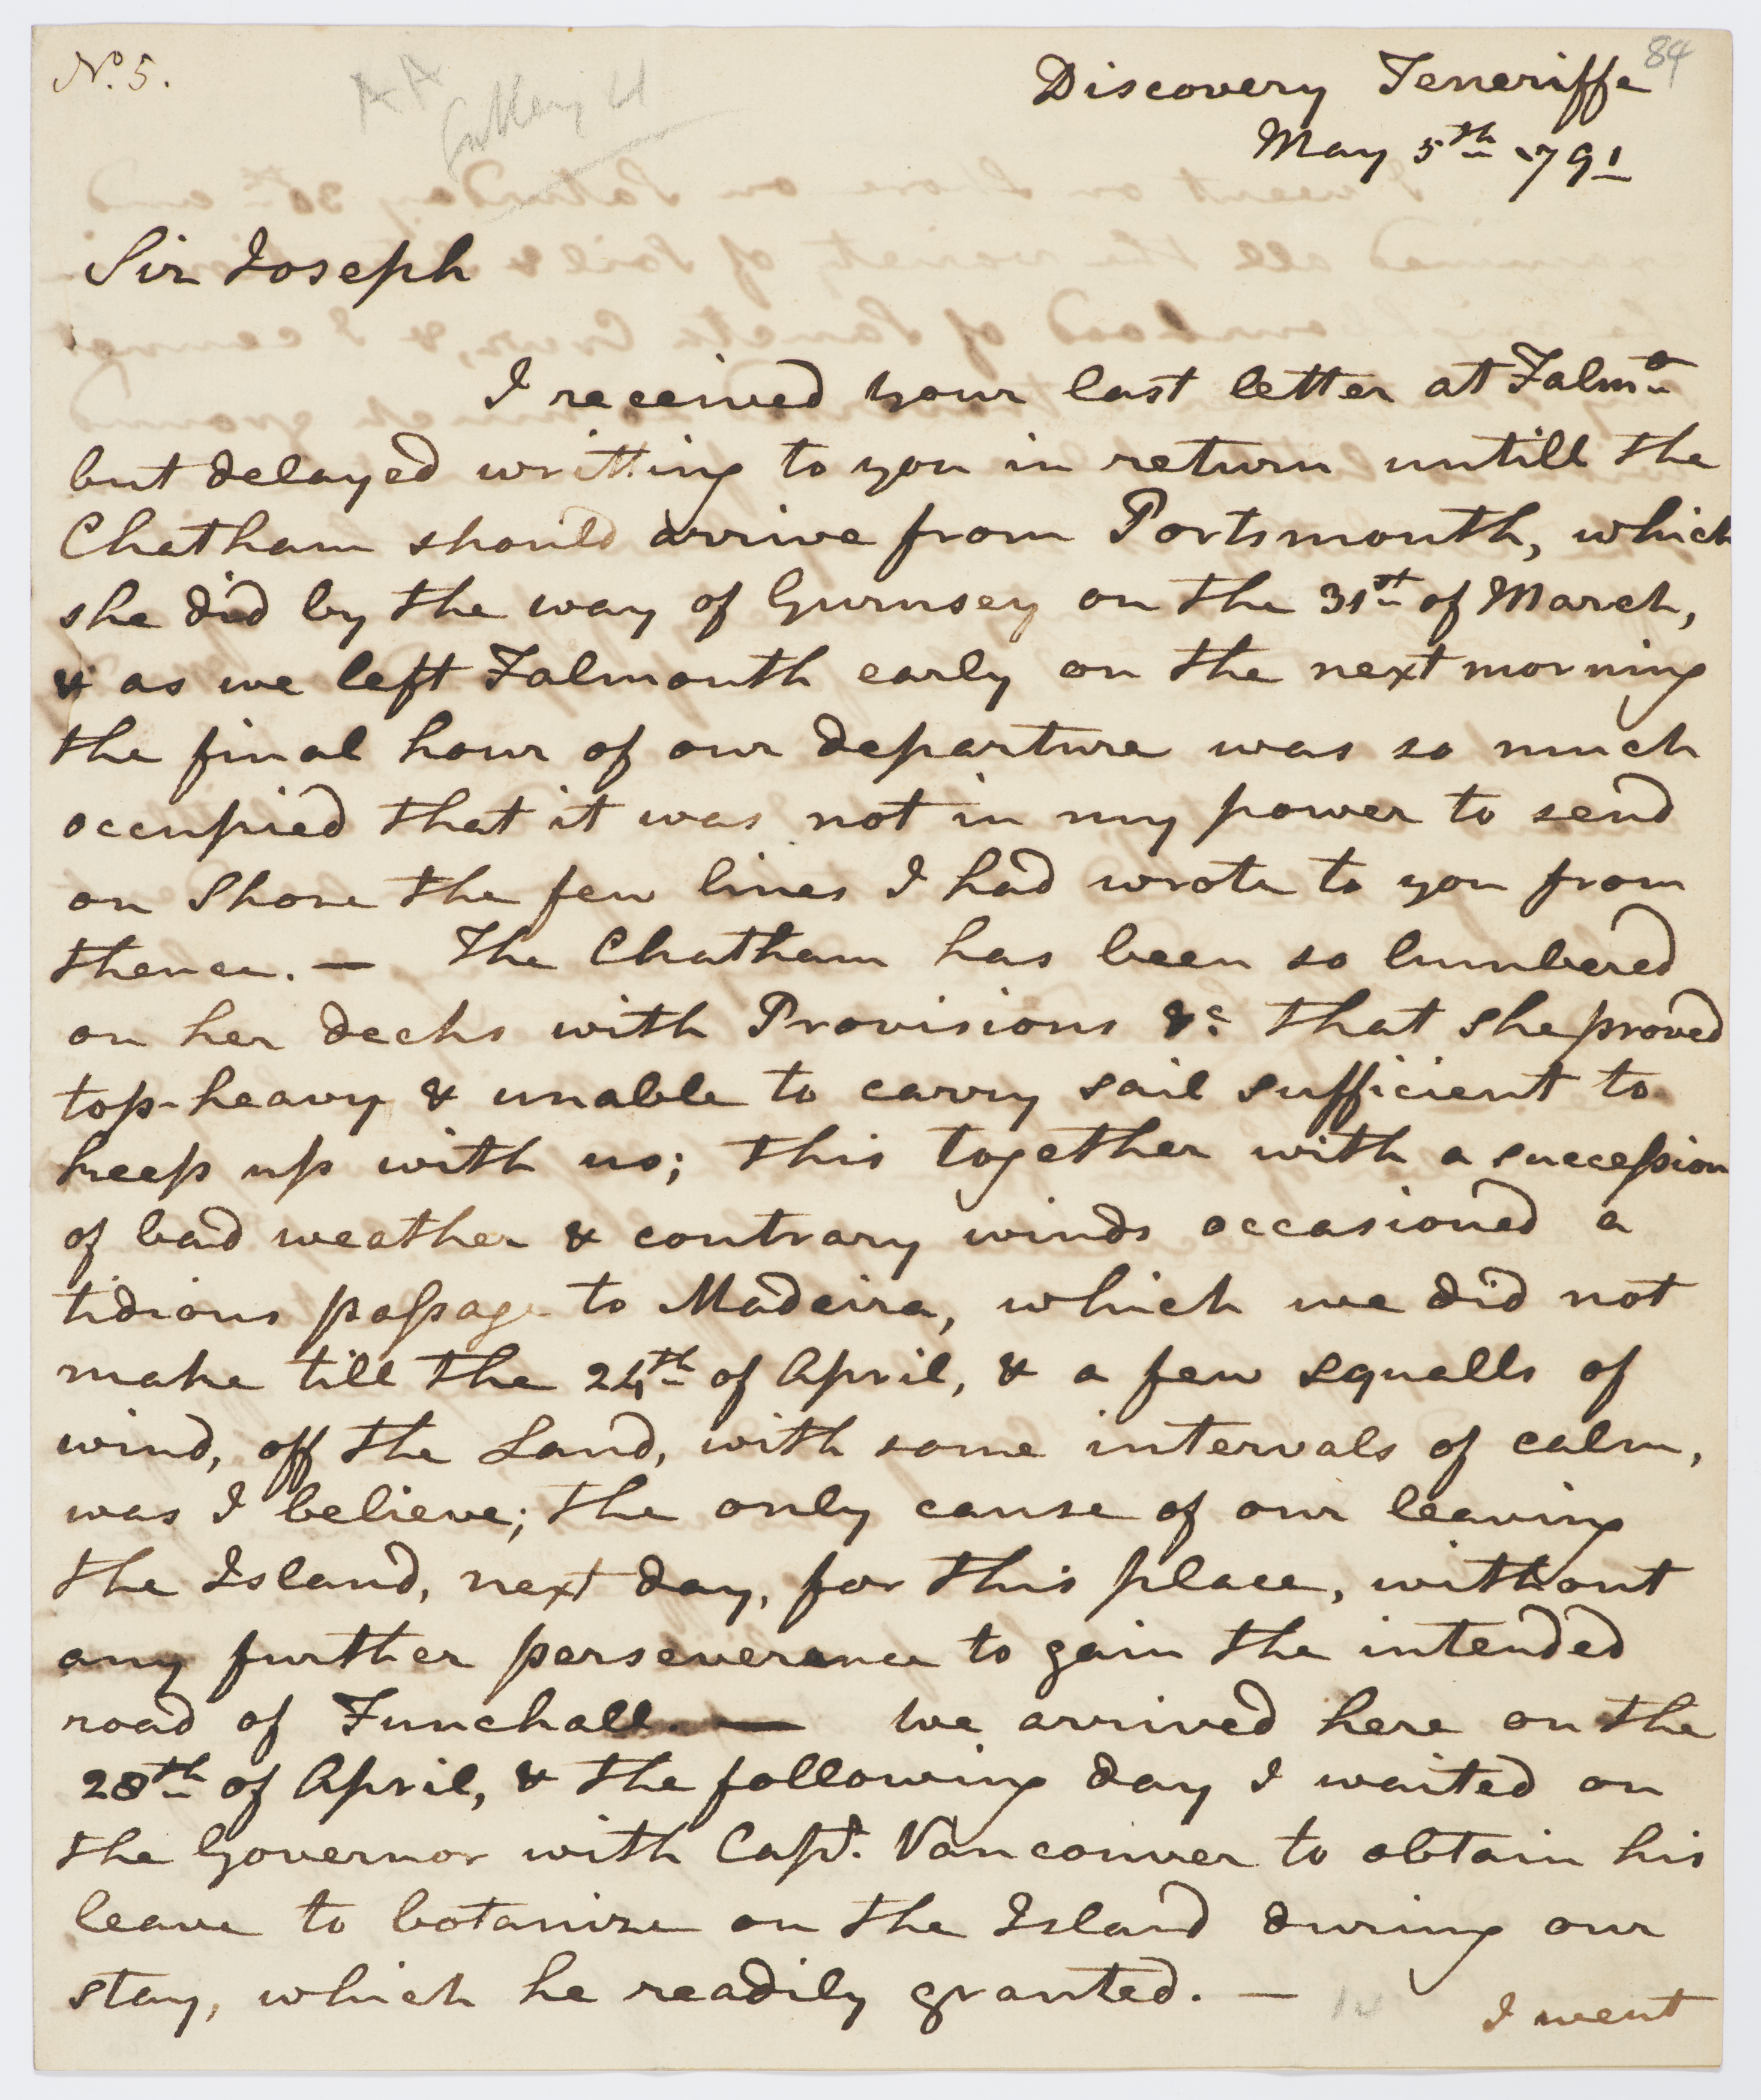 No. 5.
84
Discovery Teneriffe
May 5th 1791
Sir Joseph
I received your last letter at Falmo
but delayed writting to you in return untill the
Chatham should arrive from Portsmouth, which
she did by the way of Gurnsey on the 31st of March,
& as we left Falmouth early on the next morning
the final hour of our departure was so much
occupied that it was not in my power to send
on Shore the few lines I had wrote to you from
thence. — The Chatham has been so lumbered
on her decks with Provisions &c that she proved
top-heavy & unable to carry sail sufficient to
keep up with us; this together with a succession
of bad weather & contrary winds occasioned a
tidious passage to Madeira, which we did not
make till the 24th of April, & a few squalls of
wind, off the Land, with some intervals of calm,
was I believe; the only cause of our leaving
the Island, next day, for this place, without
any further perseverance to gain the intended
road of Funchall. — we arrived here on the
28th of April, & the following day I waited on
the Governor with Capt. Vancouver to obtain his
leave to botanize on the Island during our
stay, which he readily granted. —
I went